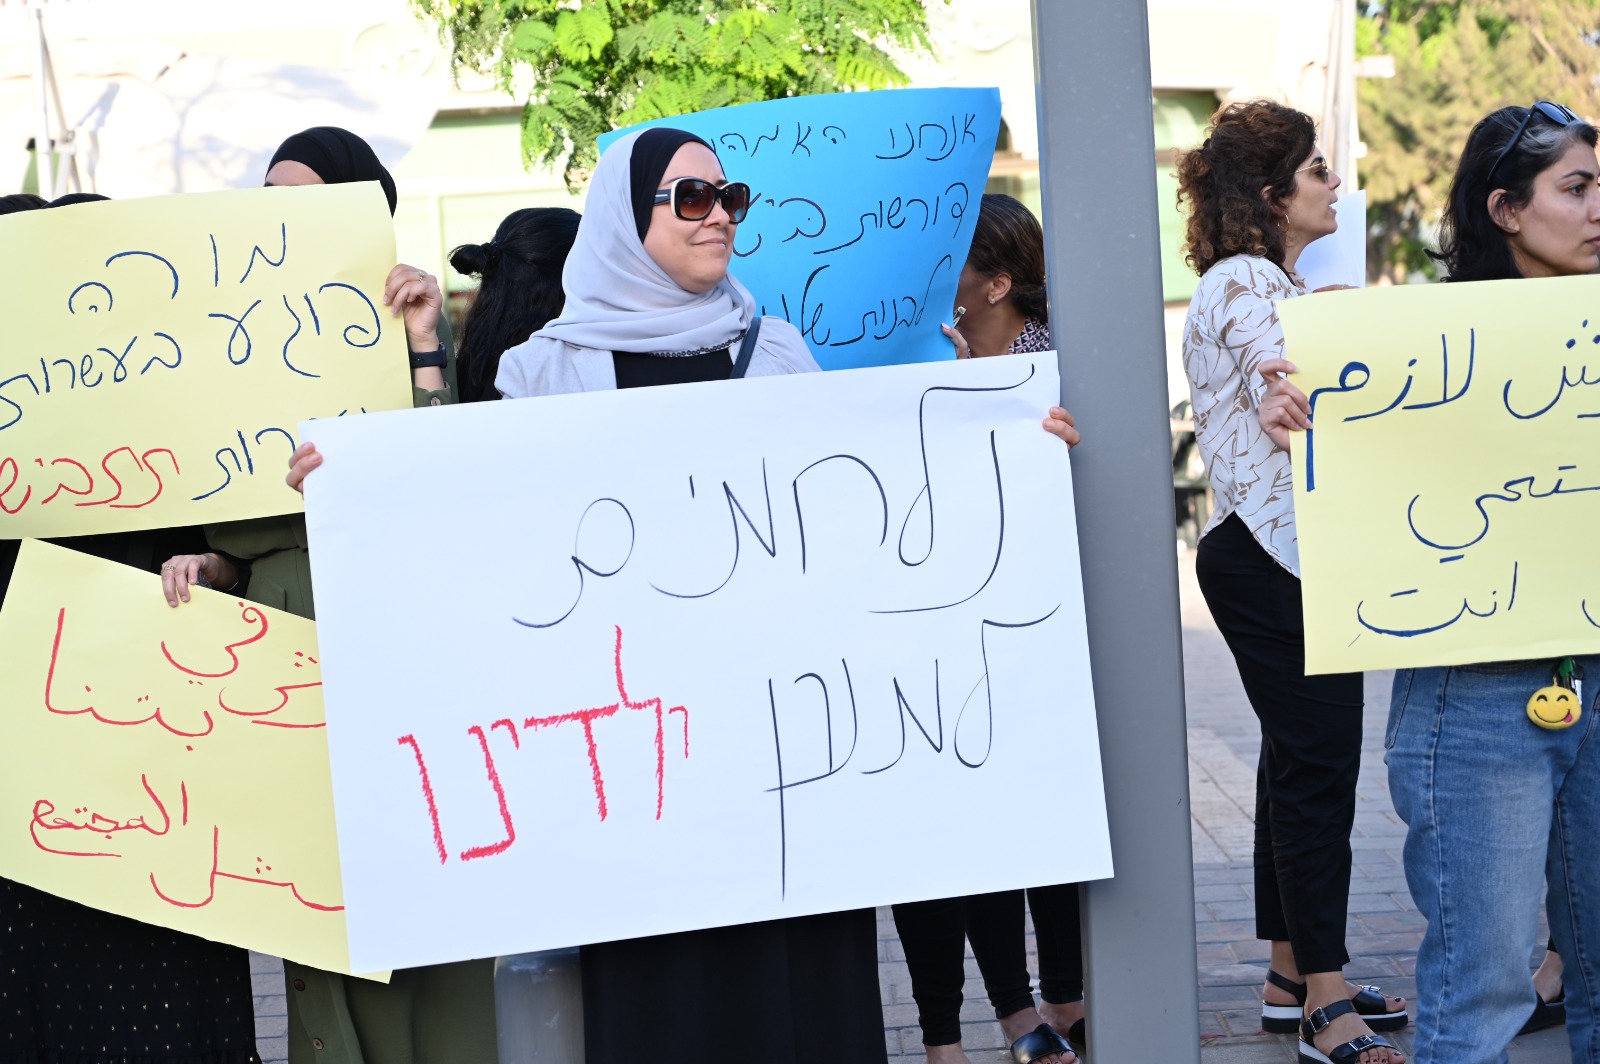 מורה
פוגע
בעשרות
תתביש
אנחנו האמהו
דורשות ביט
לבנות שלנו
נלחמים
למען ילדינו
ش لازم
تستحي
انتِ
ش في
بيتنا
المجتمع